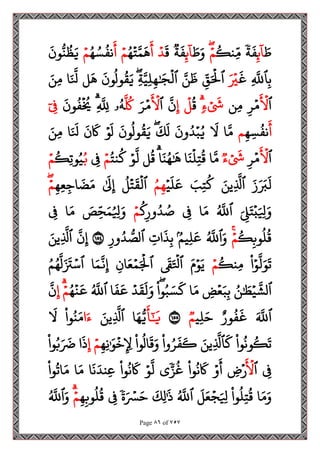 طَآئِفَةً مِّنكُمْ ۖ وَطَآئِفَةٌ قَدْ أَهَمَّتْهُمْ أَنفُسُهُمْ يَظُنُّونَ
بِٱللَّهِ غَيْرَ ٱلْحَقِّ ظَنَّ ٱلْجَٰهِلِيَّةِ ۖ يَقُولُونَ هَل لَّنَا مِنَ
ٱلْأَمْرِ مِن شَىْءٍ ۗ قُلْ إِنَّ ٱلْأَمْرَ كُلَّهُۥ لِلَّهِ ۗ يُخْفُونَ فِىٓ
أَنفُسِهِم مَّا لَا يُبْدُونَ لَكَ ۖ يَقُولُونَ لَوْ كَانَ لَنَا مِنَ
ٱلْأَمْرِ شَىْءٌ مَّا قُتِلْنَا هَٰهُنَا ۗ قُل لَّوْ كُنتُمْ فِى بُيُوتِكُمْ
لَبَرَزَ ٱلَّذِينَ كُتِبَ عَلَيْهِمُ ٱلْقَتْلُ إِلَىٰ مَضَاجِعِهِمْ ۖ
وَلِيَبْتَلِىَ ٱللَّهُ مَا فِى صُدُورِكُمْ وَلِيُمَحِّصَ مَا فِى
قُلُوبِكُمْ ۗ وَٱللَّهُ عَلِيمٌۢ بِذَاتِ ٱلصُّدُورِ ١٥٤ إِنَّ ٱلَّذِينَ
تَوَلَّوْا۟ مِنكُمْ يَوْمَ ٱلْتَقَى ٱلْجَمْعَانِ إِنَّمَا ٱسْتَزَلَّهُمُ
ٱلشَّيْطَٰنُ بِبَعْضِ مَا كَسَبُوا۟ ۖ وَلَقَدْ عَفَا ٱللَّهُ عَنْهُمْ ۗ إِنَّ
ٱللَّهَ غَفُورٌ حَلِيمٌ ١٥٥ يَٰٓأَيُّهَا ٱلَّذِينَ ءَامَنُوا۟ لَا
تَكُونُوا۟ كَٱلَّذِينَ كَفَرُوا۟ وَقَالُوا۟ لِإِخْوَٰنِهِمْ إِذَا ضَرَبُوا۟
فِى ٱلْأَرْضِ أَوْ كَانُوا۟ غُزًّى لَّوْ كَانُوا۟ عِندَنَا مَا مَاتُوا۟
وَمَا قُتِلُوا۟ لِيَجْعَلَ ٱللَّهُ ذَٰلِكَ حَسْرَةً فِى قُلُوبِهِمْ ۗ وَٱللَّهُ
Page ٨٦ of ٧٥٧